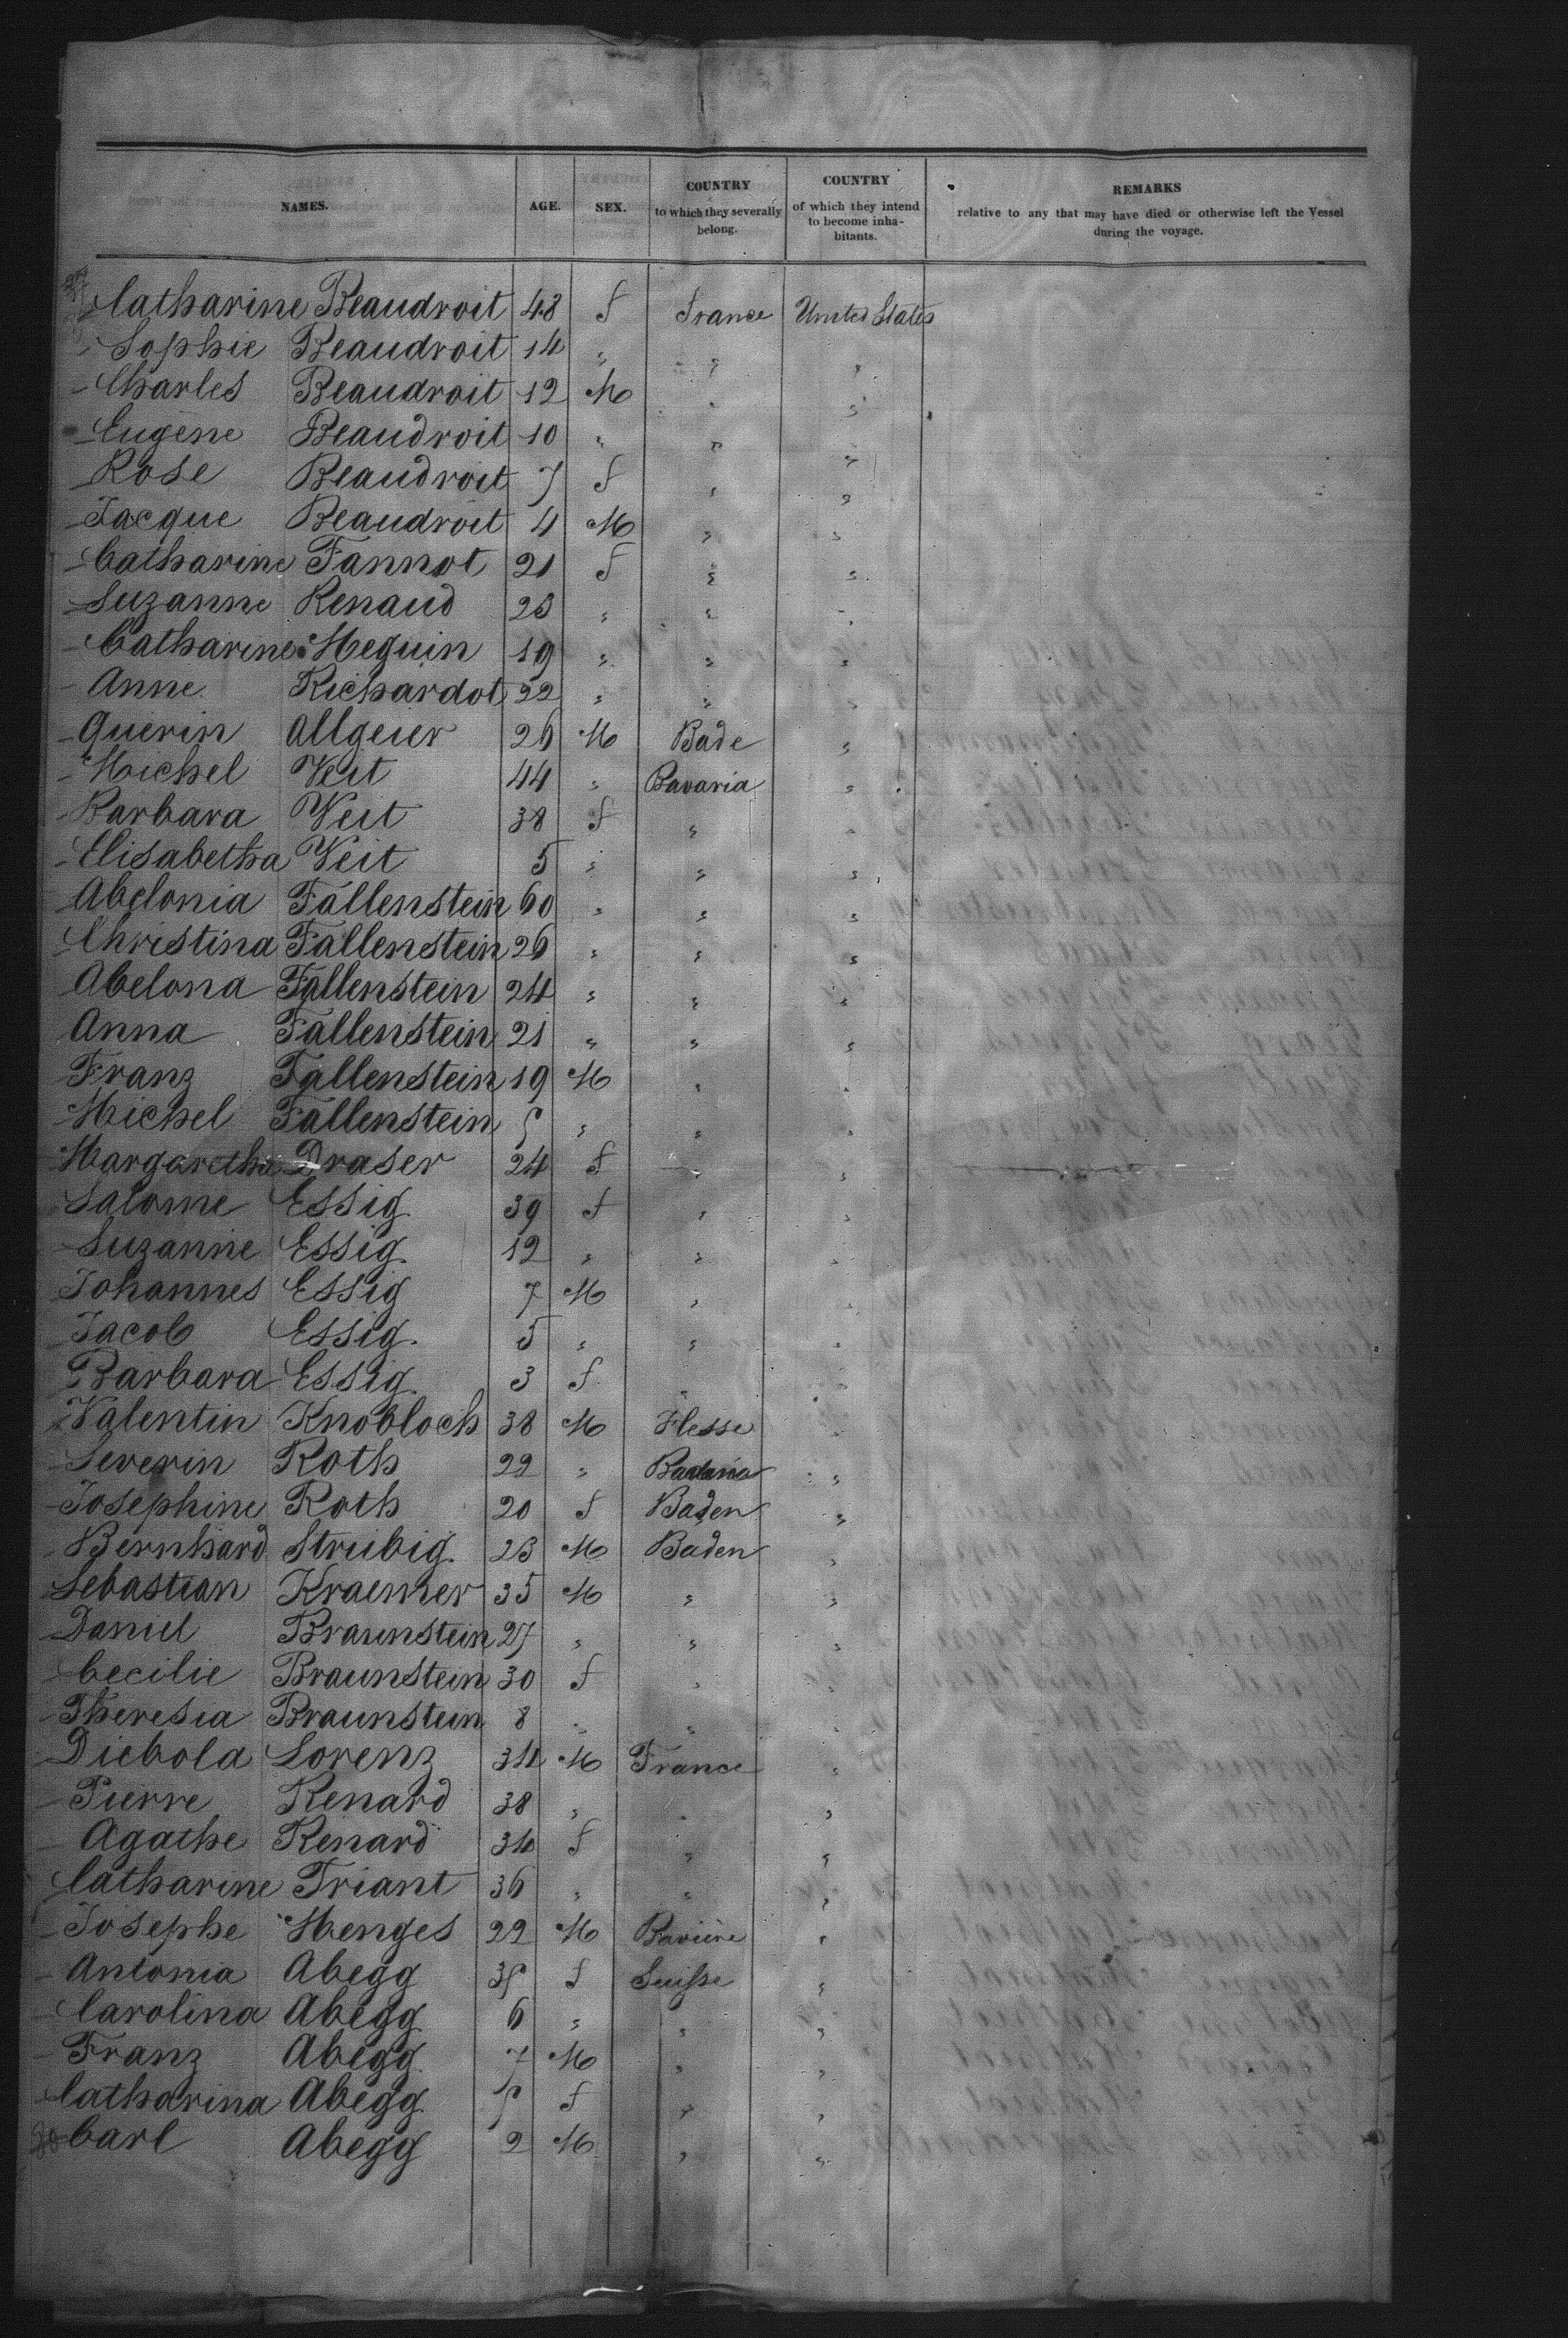 NAMES. AGE. SEX. COUNTRY to which they severally belong. COUNTRY of which they intend to become inha- bitants. REMARKS relative to any that may have died or otherwise left the Vessel during the voyage.
Catharine Beaudroit 48 f France United States
Sophie Beaudroit 14 " " "
Charles Beaudroit 12 M " "
Eugène Beaudroit 10 " " "
Rose Beaudroit 7 f " "
Jacque Beaudroit 4 M " "
Catharine Fannot 21 f " "
Suzanne Renaud 23 " " "
Catharine Meguin 19 " " "
Anne Richardot 22 " " "
Guerin Allgeier 26 M Bade "
Michel Veit 44 " Bavaria "
Barbara Veit 38 f " "
Elisabetha Veit 5 " " "
Abelonia Fallenstein 60 " " "
Christina Fallenstein 26 " " "
Abelona Fallenstein 24 " " "
Anna Fallenstein 21 " " "
Franz Fallenstein 19 M " "
Michel Fallenstein " " "
Margaretha Draser 24 f " "
Salome Essig 39 f " "
Suzanne Essig 12 " " "
Johannes Essig 7 M " "
Jacob Essig 5 " " "
Barbara Essig 3 f " "
Valentin Knobloch 38 M Hesse "
Severin Roth 22 " "
Josephine Roth 20 f Baden "
Bernhard Striebig 23 M Baden "
Sebastian Kraemer 35 M " "
Daniel Braunstein 27 " " "
Cecilie Braunstein 30 f " "
Theresia Braunstein 8 " " "
Diebola Lorenz 34 M France "
Pierre Renard 38 " " "
Agathe Renard 34 f " "
Catharine Triant 36 " " "
Josephe Menges 22 M Bavière "
Antonia Abegg 35 f Suisse "
Carolina Abegg 6 " " "
Franz Abegg 7 M " "
Catharina Abegg f " "
Carl Abegg 2 M " "